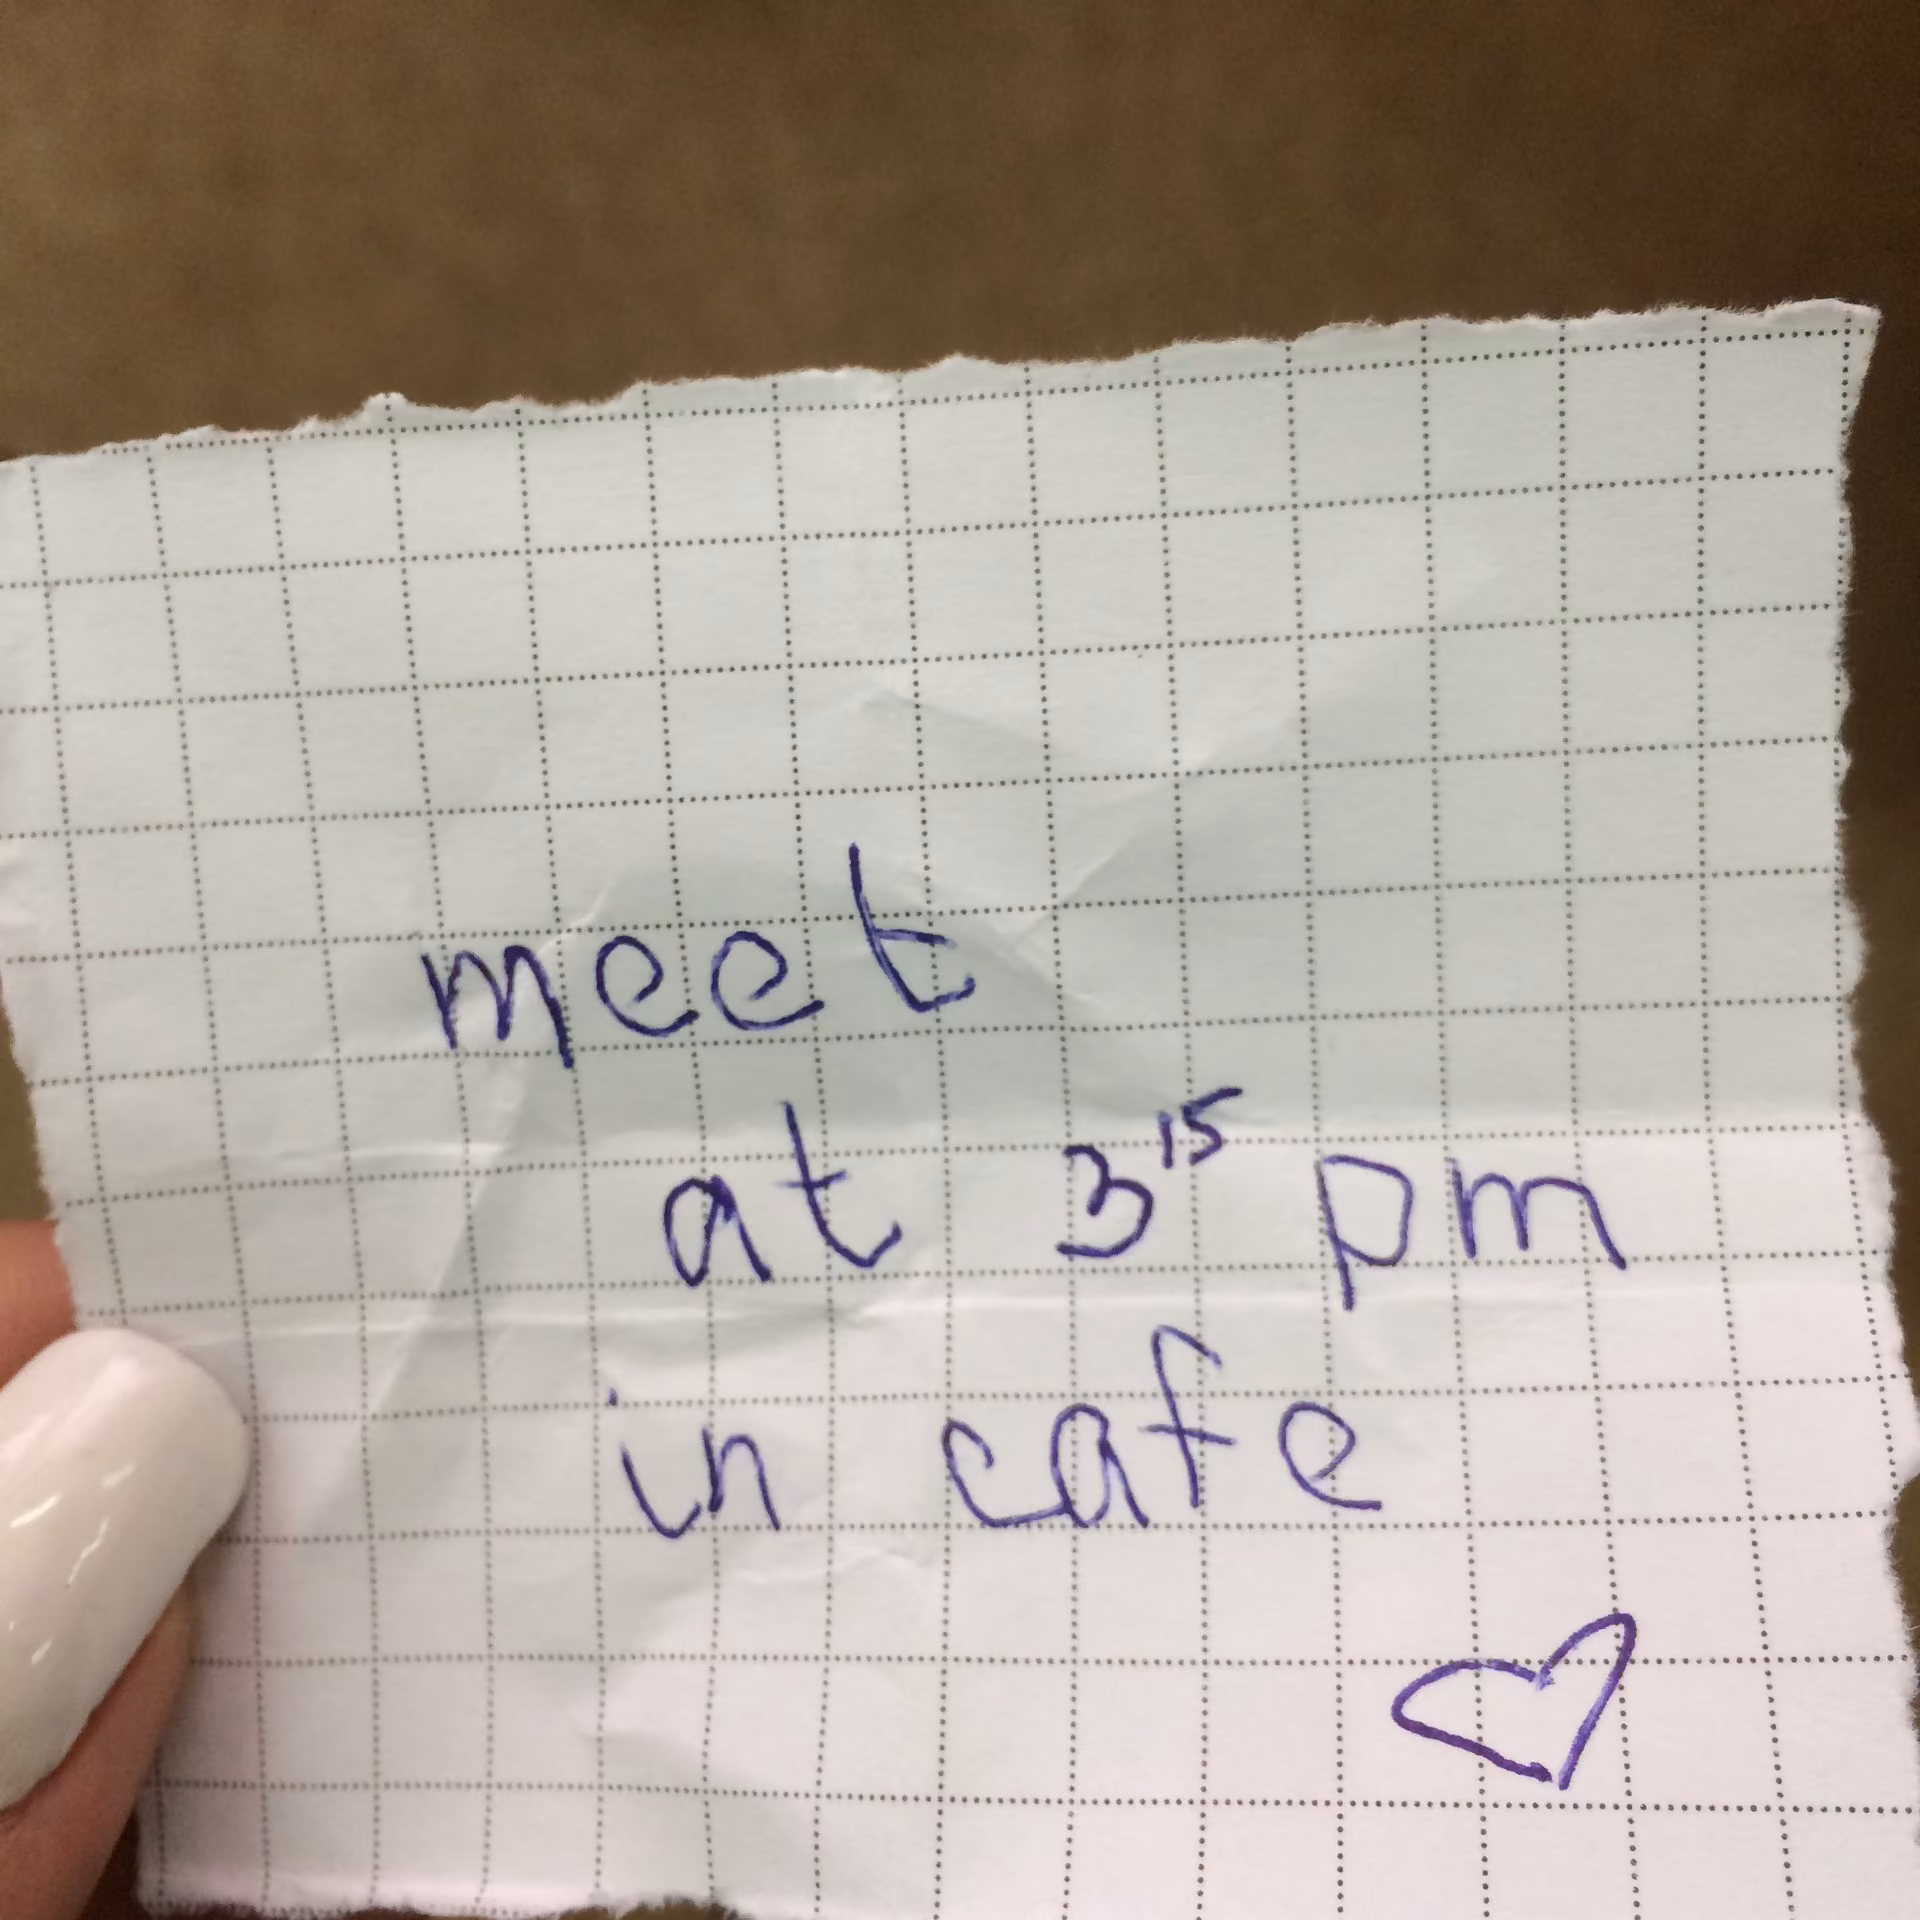 meet
at 3¹⁵ pm
in cafe